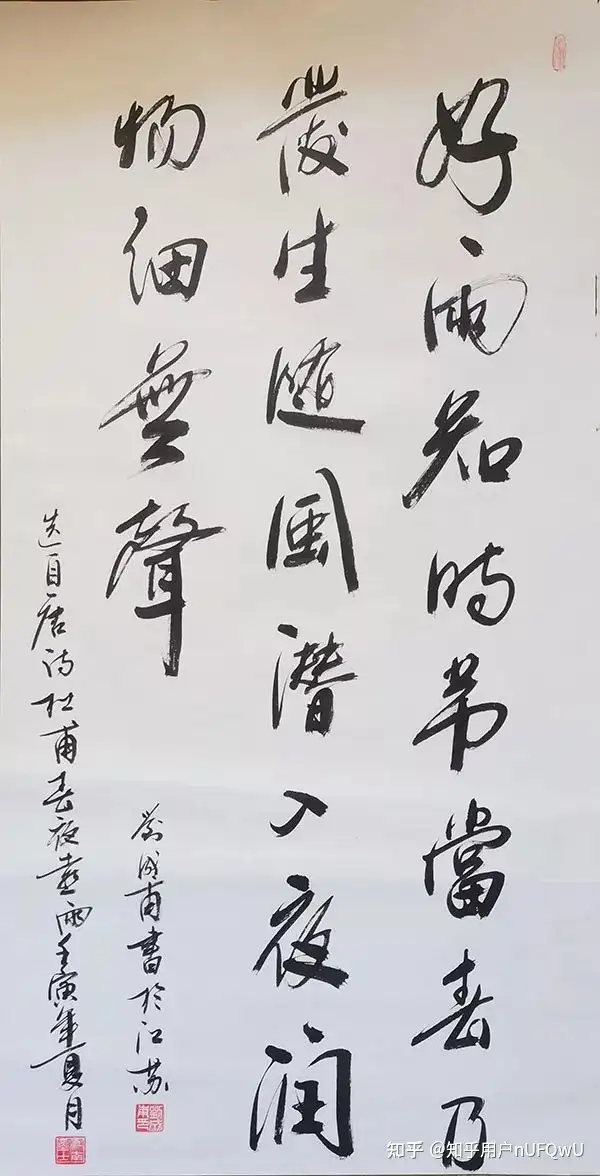 好雨知時節當春乃
發生隨風潛入夜润
物細無聲
选自唐诗杜甫春夜喜雨壬寅年夏月
劉成甫書於江苏
知乎 @知乎用户nUFQwU